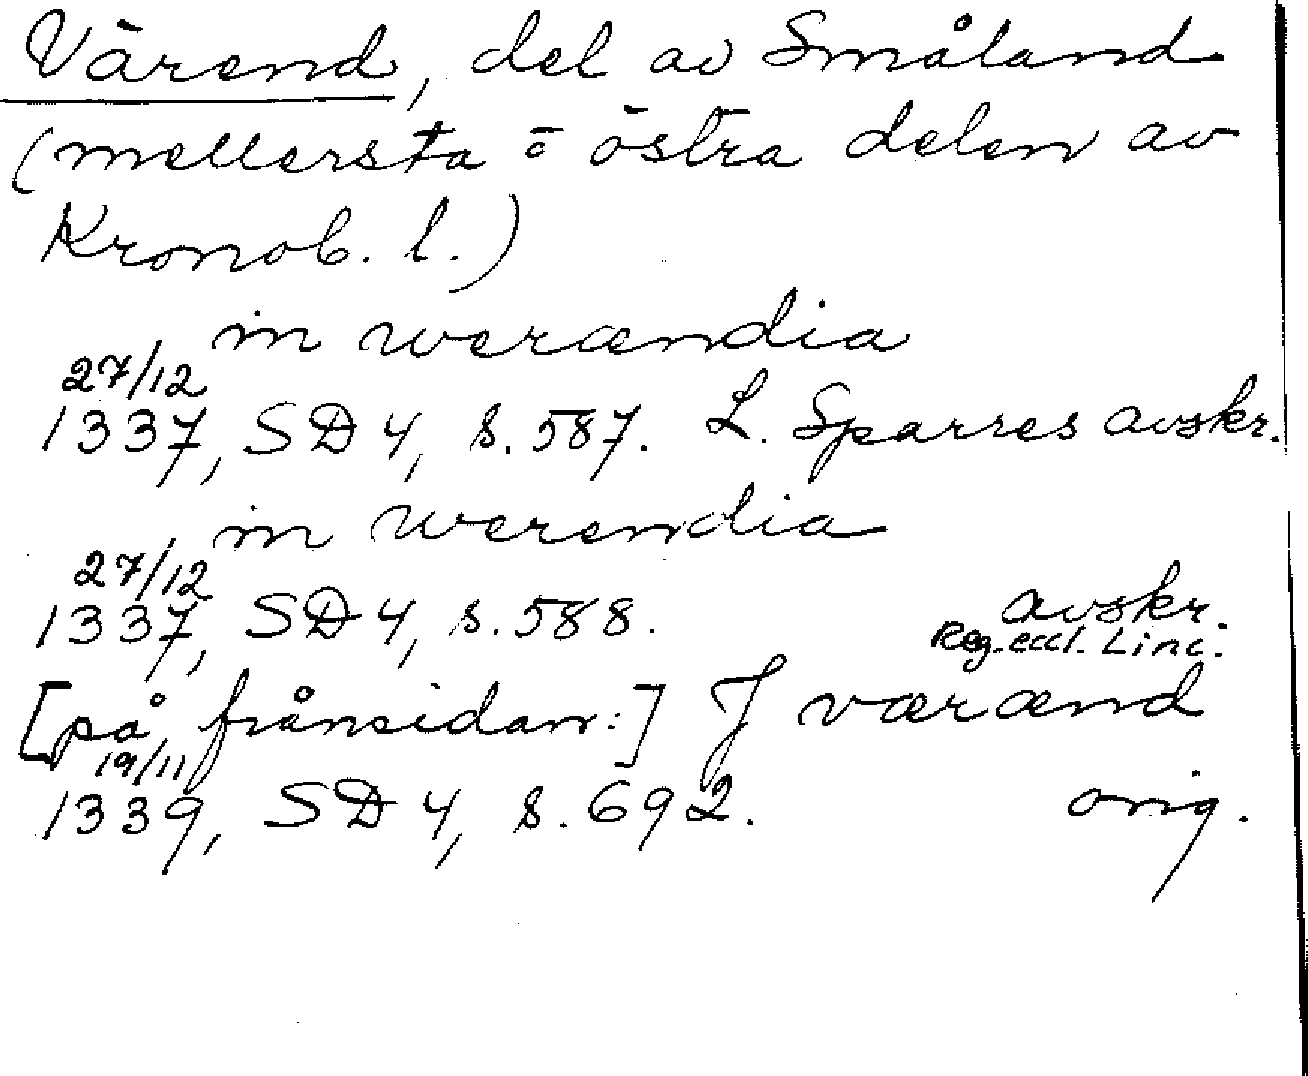 Värend, del av Småland
(mellersta o östra delen av
Kronob. l.)
in werændia
27/12
1337, SD 4, s. 587. L. Sparres avskr.
in werendia
27/12
1337, SD 4, s. 588. avskr.
Reg. eccl. Linc.
[på frånsidan:] J værænd
19/11
1339, SD 4, s. 692. orig.